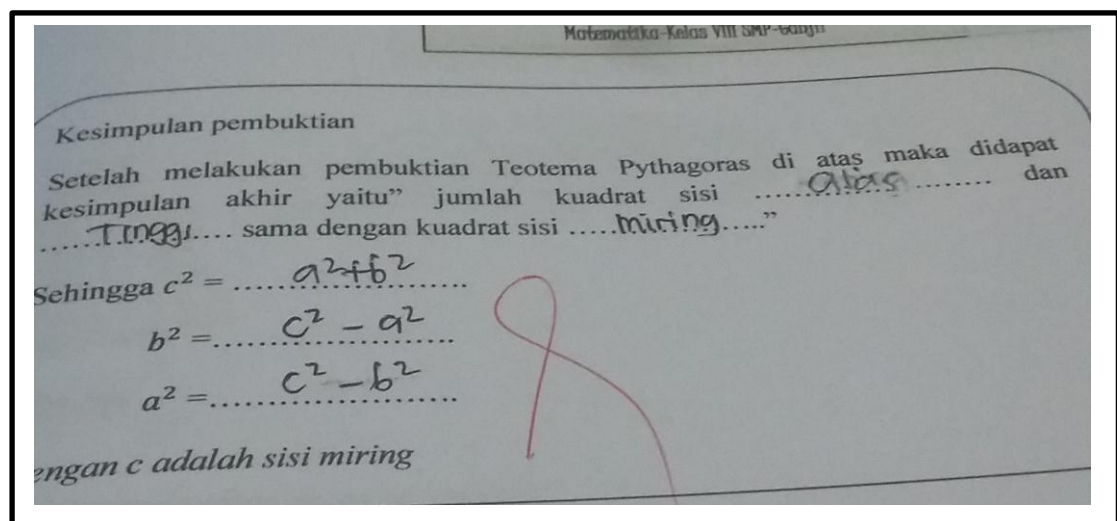 Matematika-Kelas VIII SMP-Ganjil
Kesimpulan pembuktian
Setelah melakukan pembuktian Teotema Pythagoras di atas maka didapat
kesimpulan akhir yaitu” jumlah kuadrat sisi .....alas........ dan
......Tinggi.... sama dengan kuadrat sisi .....miring.....”
Sehingga c² = ......a²+b²......
b² =......c² - a²......
a² =......c² - b²......
engan c adalah sisi miring